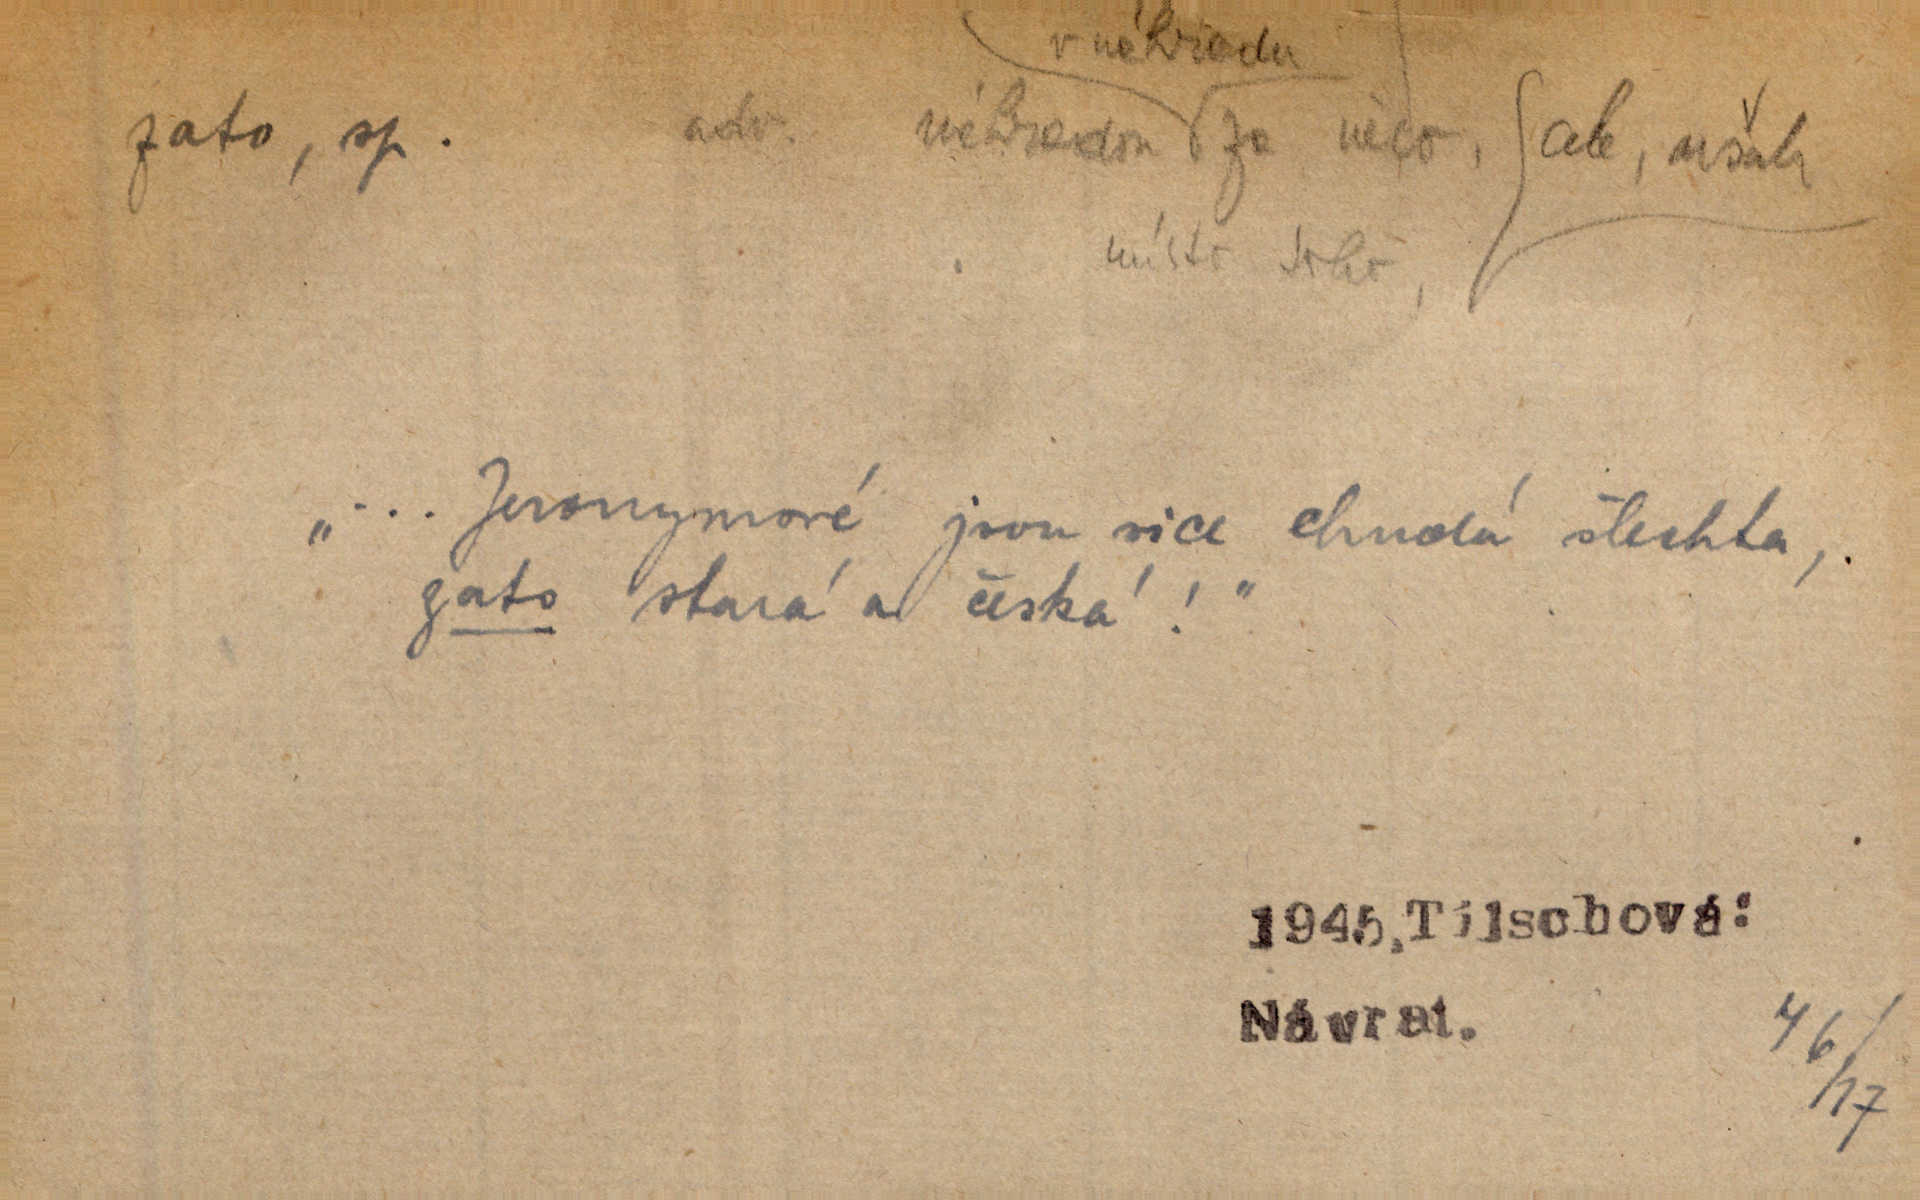 v náhradu
zato, sp. adv. náhradou za něco, ale, však
místo toho,
„... Jeronymové jsou sice chudá šlechta,
zato stará a česká!"
1945, Tilschová:
Návrat.
46/17